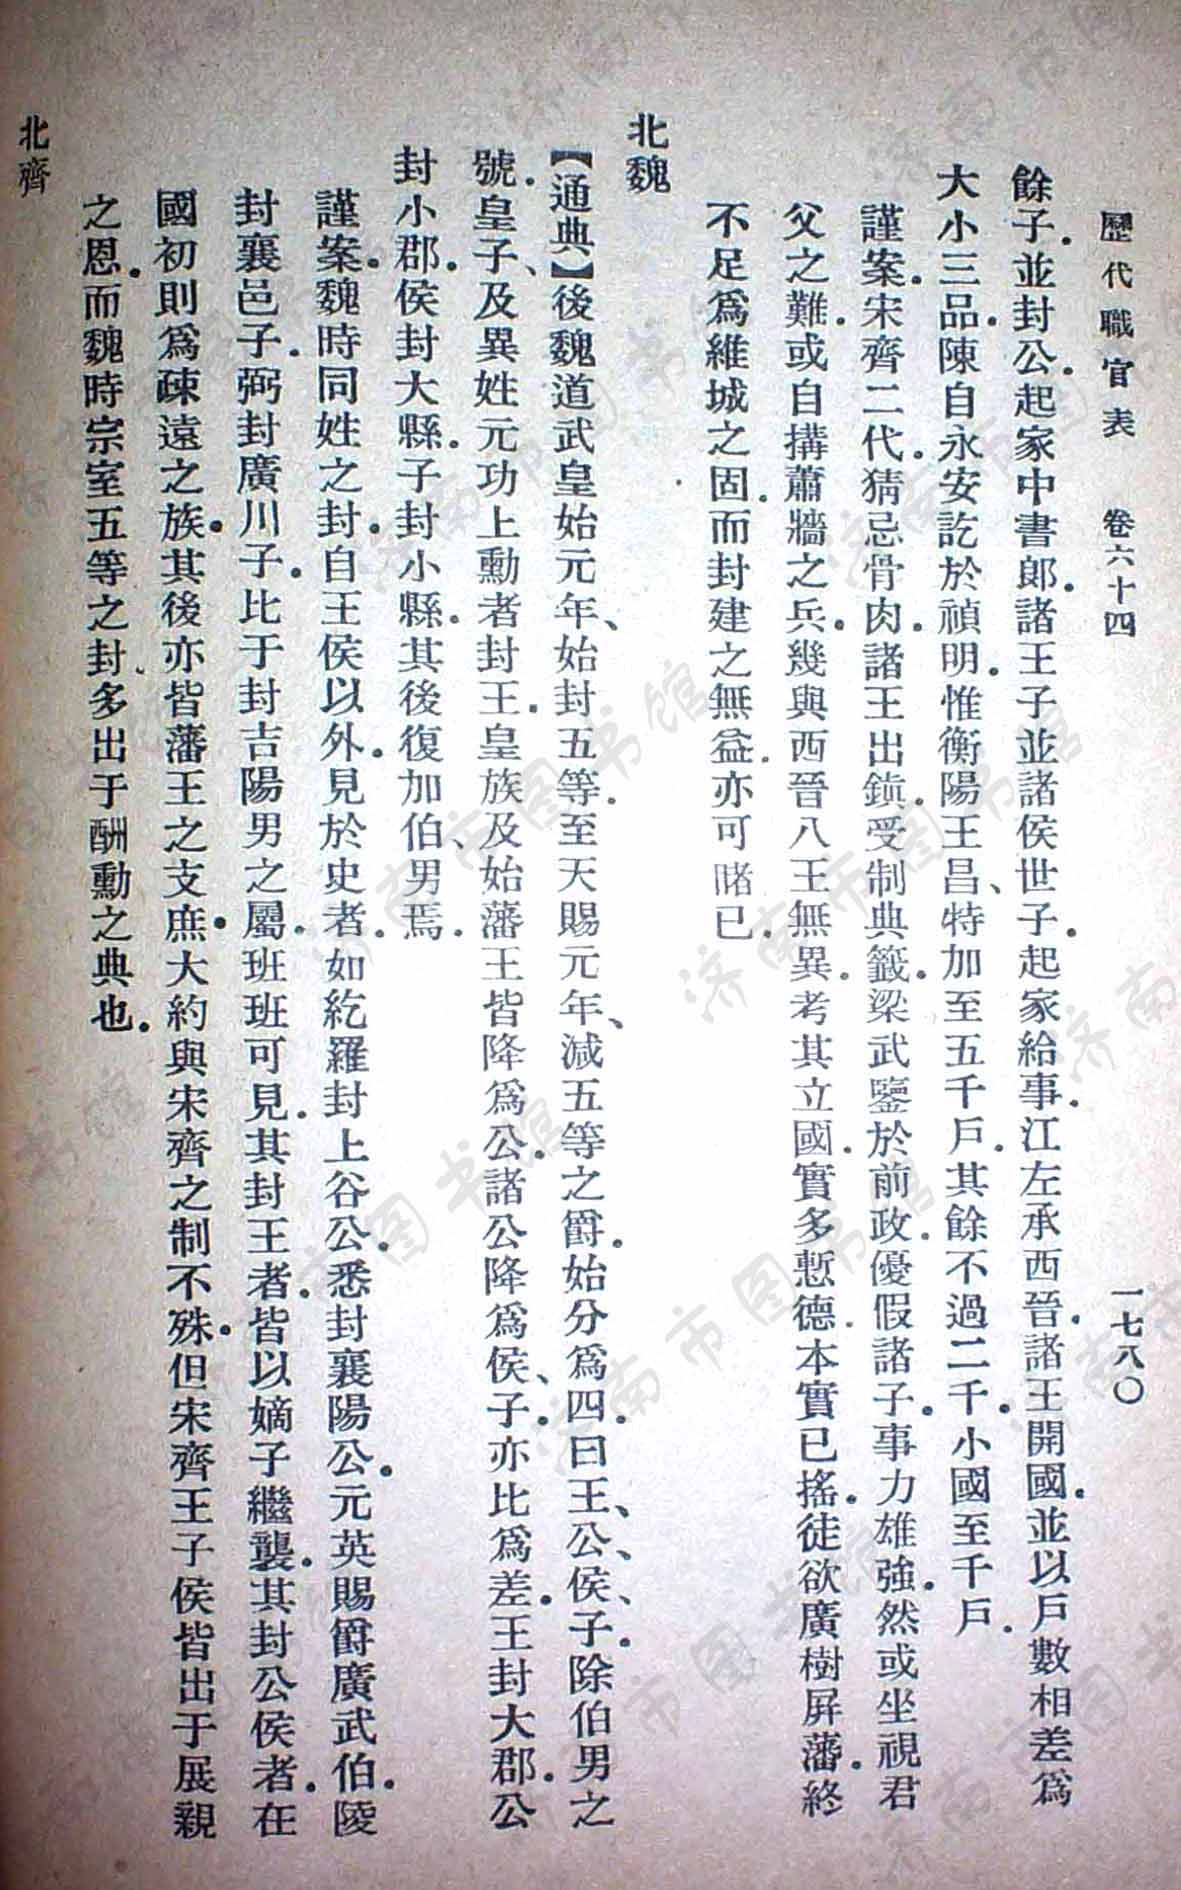 歷代職官表　卷六十四　一七八〇
餘子．並封公．起家中書郎．諸王子並諸侯世子．起家給事．江左承西晉．諸王開國．並以戶數相差爲
大小三品．陳自永安訖於禎明．惟衡陽王昌、特加至五千戶．其餘不過二千．小國至千戶．
謹案．宋齊二代．猜忌骨肉．諸王出鎮．受制典籤．梁武鑒於前政．優假諸子．事力雄強．然或坐視君
父之難．或自搆蕭牆之兵．幾與西晉八王無異．考其立國．實多慙德．本實已搖．徒欲廣樹屏藩．終
不足爲維城之固．而封建之無益．亦可睹已．
北魏
【通典】後魏道武皇始元年、始封五等．至天賜元年、減五等之爵．始分爲四．曰王、公、侯、子．除伯男之
號．皇子、及異姓元功上勳者封王．皇族及始藩王皆降爲公．諸公降爲侯、子．亦比爲差．王封大郡．公
封小郡．侯封大縣．子封小縣．其後復加伯、男焉．
謹案．魏時同姓之封．自王侯以外．見於史者．如紇羅封上谷公．悉封襄陽公．元英賜爵廣武伯．陵
封襄邑子．弼封廣川子．比于封吉陽男之屬．班班可見．其封王者．皆以嫡子繼襲．其封公侯者．在
國初則爲疎遠之族．其後亦皆藩王之支庶．大約與宋齊之制不殊．但宋齊王子侯皆出于展親
之恩．而魏時宗室五等之封．多出于酬勳之典也．
北齊
濟南市图书馆